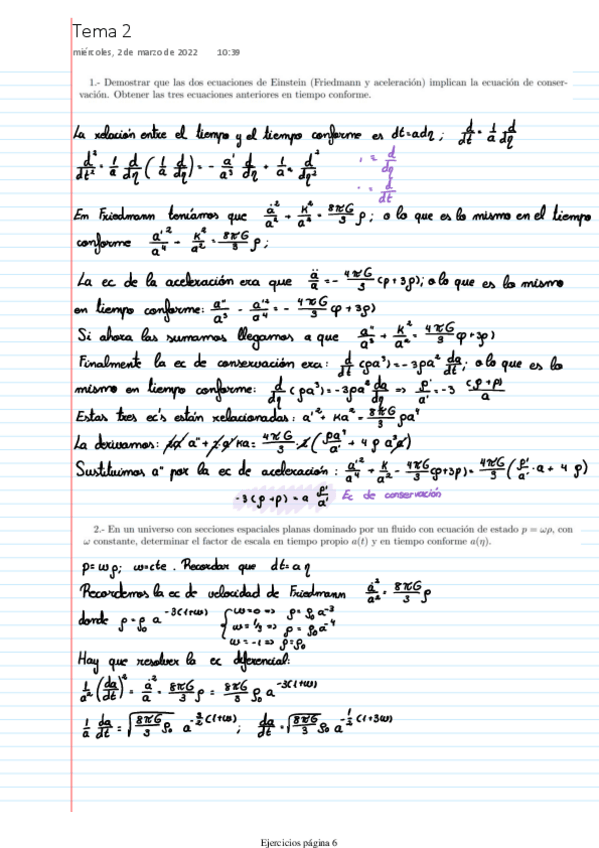 Tema 2
miércoles, 2 de marzo de 2022 10:39
1.- Demostrar que las dos ecuaciones de Einstein (Friedmann y aceleración) implican la ecuación de conser-
vación. Obtener las tres ecuaciones anteriores en tiempo conforme.
La relación entre el tiempo y el tiempo conforme es dt=adη; d/dt = 1/a d/dη
d²/dt² = 1/a d/dη (1/a d/dη) = - a'/a³ d/dη + 1/a² d²/dη²
' ≡ d/dη
· = d/dt
En Friedmann teníamos que ȧ²/a² + K/a² = 8πG/3 ρ; o lo que es lo mismo en el tiempo
conforme a'²/a⁴ - K/a² = 8πG/3 ρ;
La ec de la aceleración era que ä/a = - 4πG/3 (ρ+3p); o lo que es lo mismo
en tiempo conforme: a''/a³ - a'²/a⁴ = - 4πG/3 (ρ+3p)
Si ahora las sumamos llegamos a que a''/a³ + K/a² = 4πG/3 (ρ+3p)
Finalmente la ec de conservación era: d/dt (ρa³) = -3pa² da/dt; o lo que es lo
mismo en tiempo conforme: d/dη (ρa³) = -3pa² da/dη ⇒ ρ'/a' = -3 (ρ+p)/a
Estas tres ec's están relacionadas: a'² + Ka² = 8πG/3 ρa⁴
La derivamos: 2a' a'' + 2a'Ka = 4πG/3 · 2 (ρa⁴/a' + 4ρa³a')
Sustituimos a'' por la ec de aceleración: a'²/a⁴ + K/a² - 4πG/3 (ρ+3p) = 4πG/3 (ρ'/a' · a + 4ρ)
-3(ρ+p) = a ρ'/a' Ec de conservación
2.- En un universo con secciones espaciales planas dominado por un fluido con ecuación de estado p = ωρ, con
ω constante, determinar el factor de escala en tiempo propio a(t) y en tiempo conforme a(η).
p=ωρ; ω=cte. Recordar que dt=aη
Recordemos la ec de velocidad de Friedmann ȧ²/a² = 8πG/3 ρ
donde ρ=ρ₀ a^-3(1+ω) { ω=0 ⇒ ρ=ρ₀a⁻³
ω=1/3 ⇒ ρ=ρ₀a⁻⁴
ω=-1 ⇒ ρ=ρ₀
Hay que resolver la ec diferencial:
1/a² (da/dt)² = ȧ²/a² = 8πG/3 ρ = 8πG/3 ρ₀ a^-3(1+ω)
1/a da/dt = √(8πG/3 ρ₀) a^-3/2(1+ω); da/dt = √(8πG/3 ρ₀) a^-1/2(1+3ω)
Ejercicios página 6